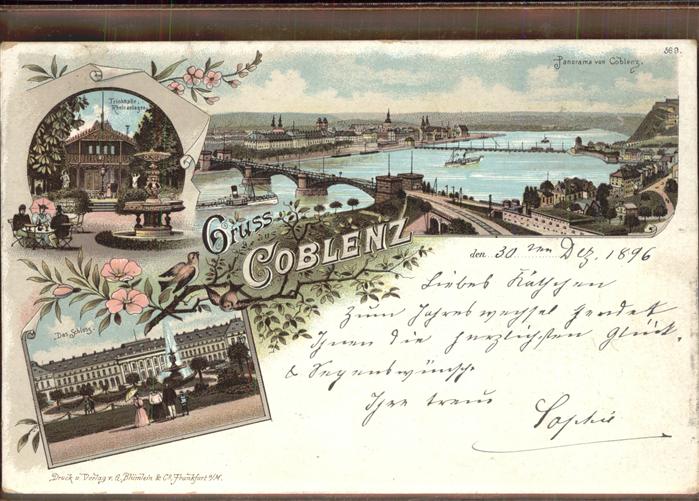 569.
Panorama von Coblenz.
Trinkhalle,
Rheinanlagen
Gruss
aus
COBLENZ
den 30 ten Dez. 1896
Liebes Käthchen
Zum Jahreswechsel sendet
Ihnen die herzlichsten Glück-
& Segenswünsche
Ihre treue
Sophie
Das Schloss.
Druck u. Verlag v. O. Blümlein & Co., Frankfurt a/M.